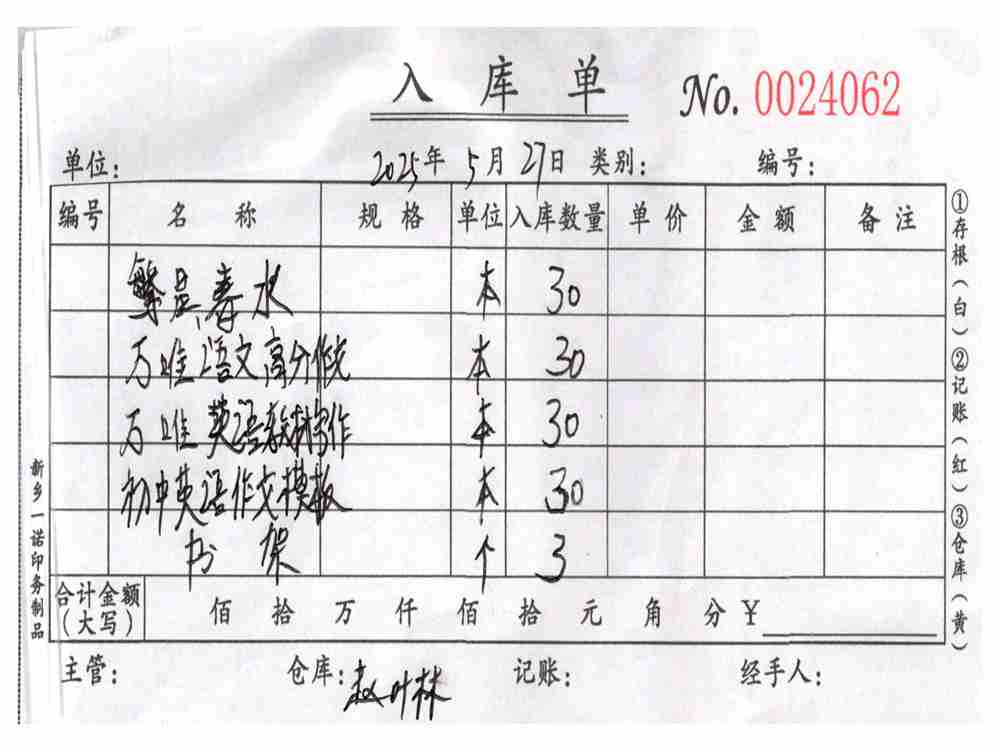 入库单 No. 0024062
单位： 2025年 5月 27日 类别： 编号：
编号 名称 规格 单位 入库数量 单价 金额 备注
繁星、春水 本 30
万唯语文高分作文 本 30
万唯英语教材写作 本 30
初中英语作文模板 本 30
书架 个 3
合计金额（大写） 佰 拾 万 仟 佰 拾 元 角 分 ￥
主管： 仓库：赵叶林 记账： 经手人：
①存根（白）②记账（红）③仓库（黄）
新乡一诺印务制品